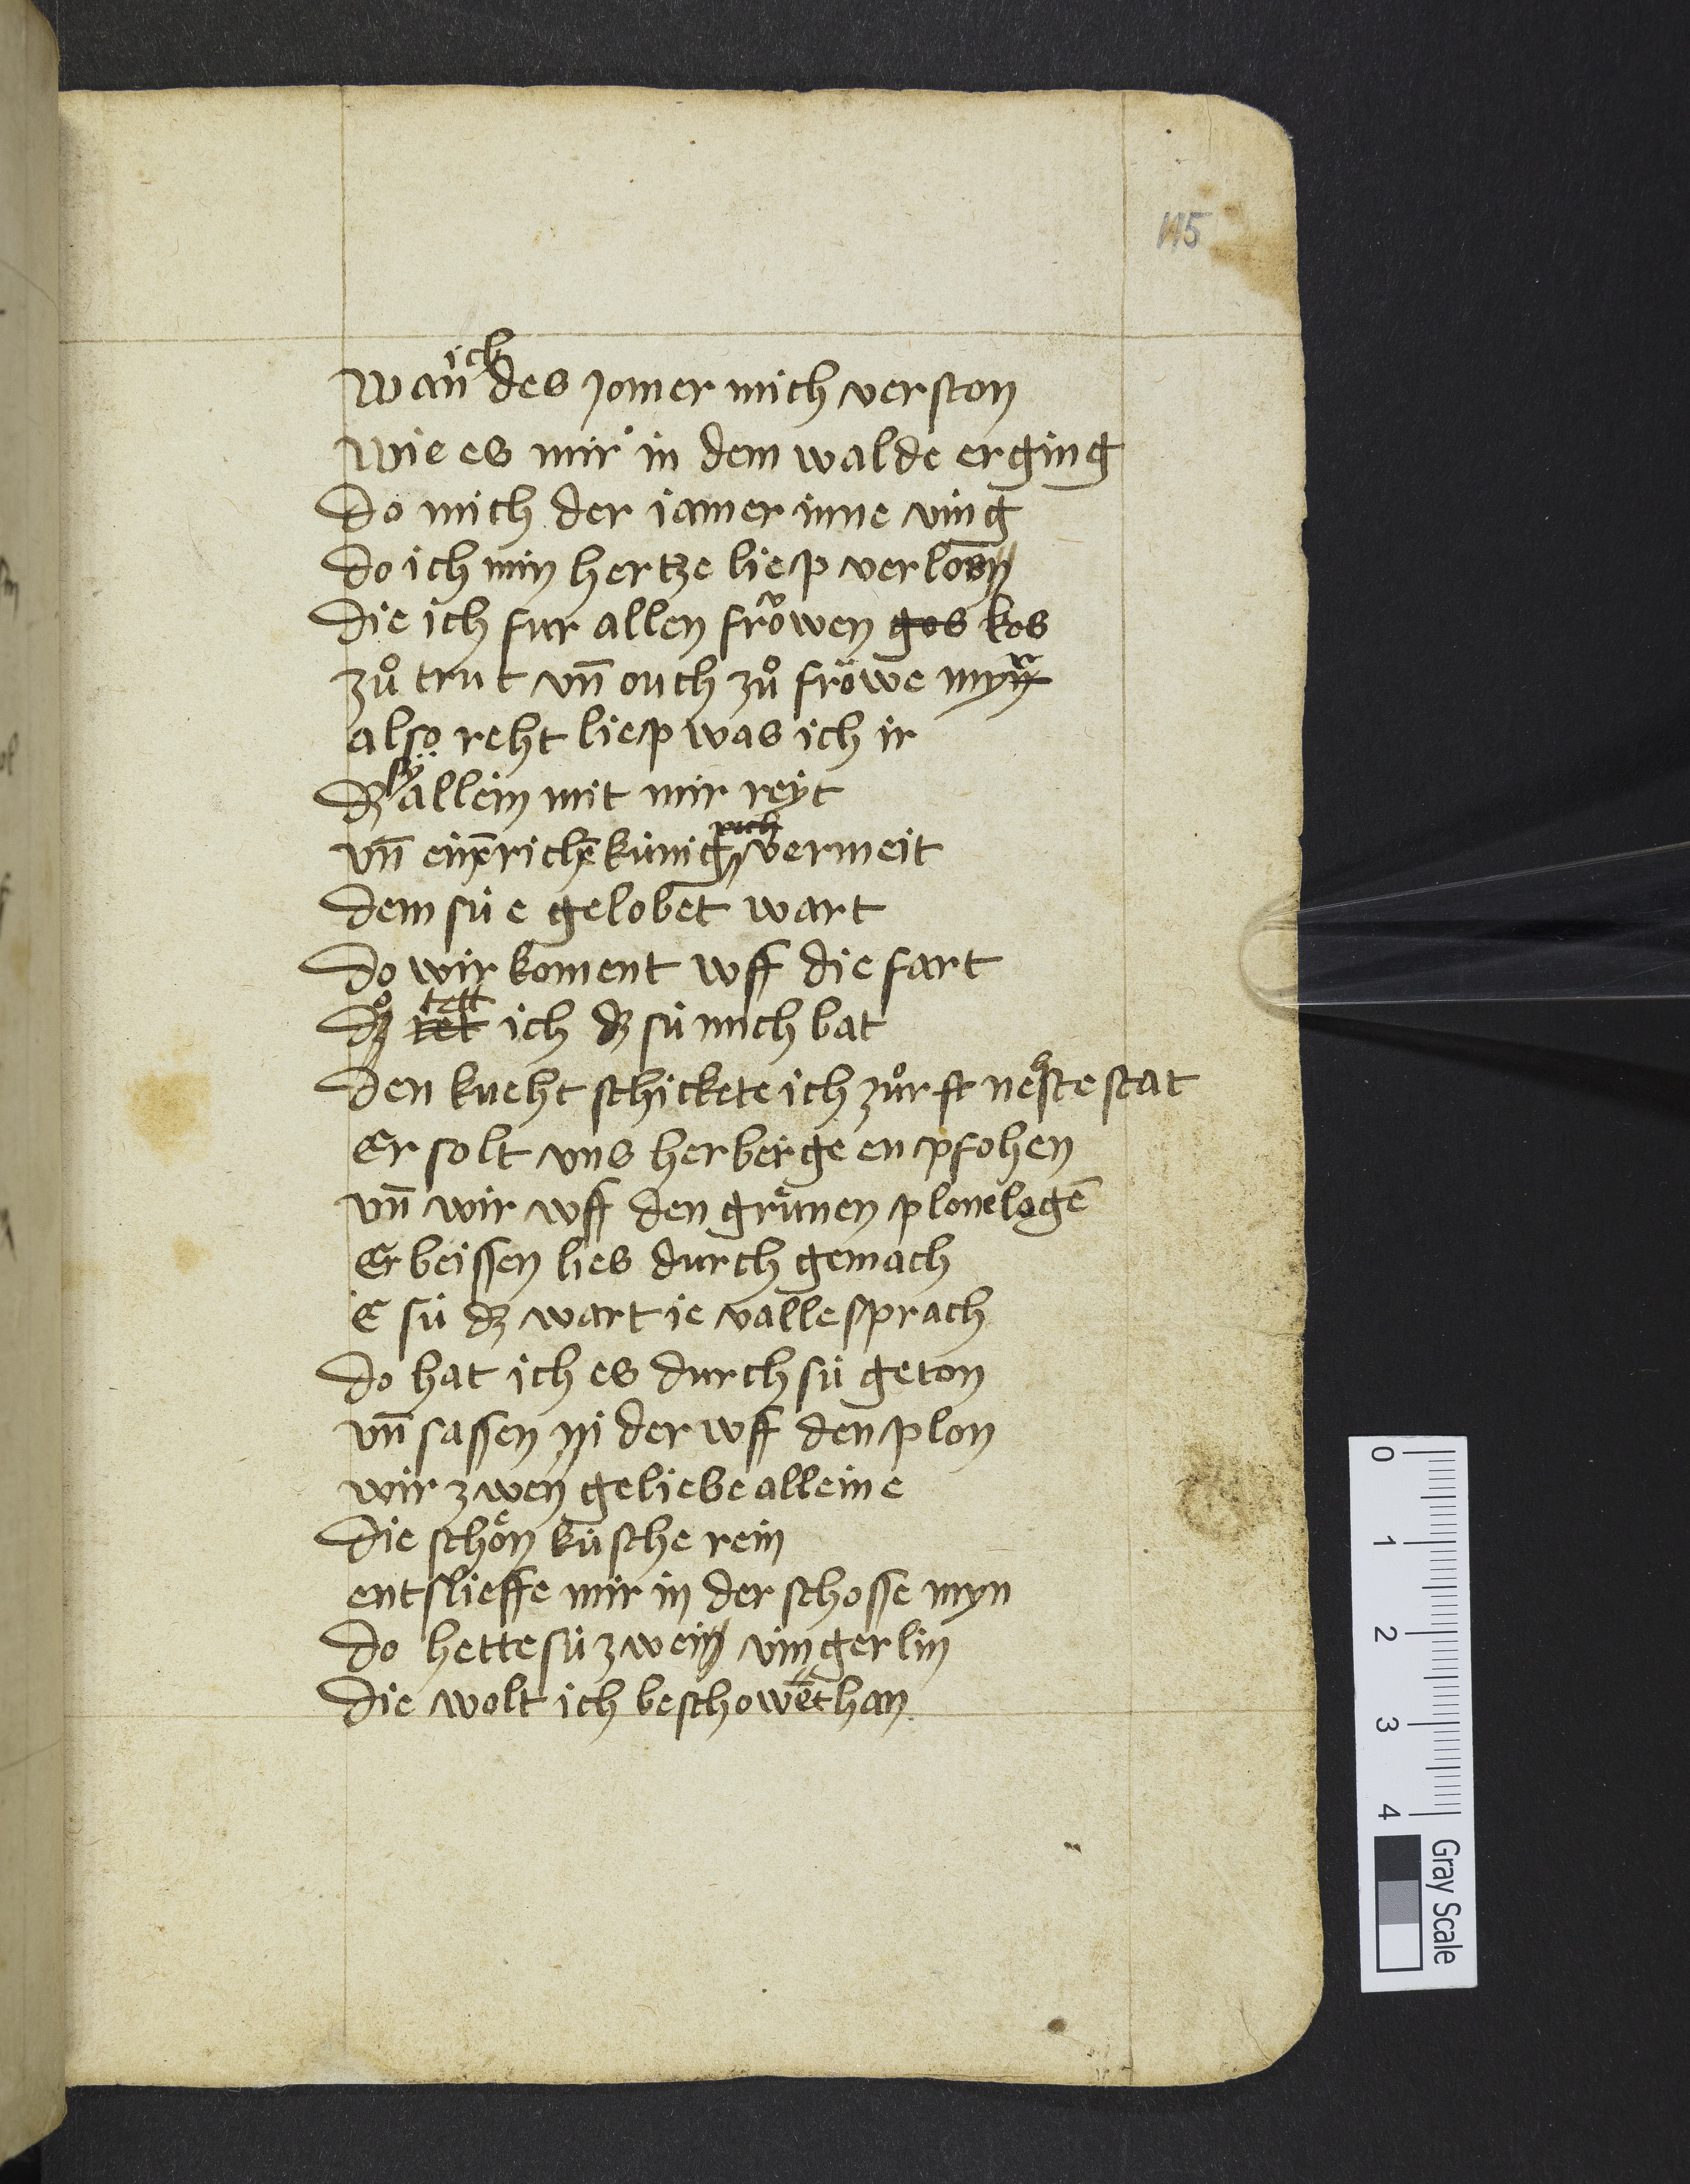 115
Wan ich des jomer mich verston
Wie es mir in dem walde erging
Do mich der jamer inne ving
Do ich min hertze liep verlos
Die ich fur allen frowen gos kos
zuͦ trut vn̄ ouch zuͦ frowe mir
also reht liep was ich ir
dz sy allein mit mir reyt
vn̄ ein richē künig vermeit
Dem sü e gelobet wart
Do wir koment vff die fart
do tet tett ich dz sü mich bat
Den kneht schickete ich zuͦr neste stat
Er solt vns herberge enpfohen
vn̄ wir vff den gruͤnen plone logē
Erbeissen lies durch gemach
E sü dz wart ie valle sprach
Do hat ich es durch sü geton
vn̄ sassen nider vff den plon
wir zwey geliebe alleine
Die schoͤn küsche rein
entslieffe mir in der schosse myn
Do hette sü zwei vingerlin
Die wolt ich beschowet han
0
1
2
3
4
Gray Scale